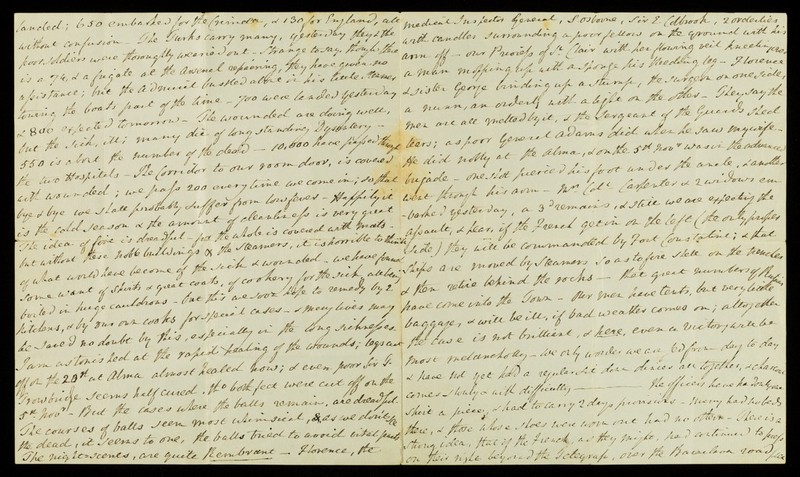 landed; 650 embarked for the Crimea, & 130 for England, all
without confusion. The Turks carry many, yesterday they & the
poor soldiers were thoroughly wearied out - Strange to say, though there
is a 74, & a frigate at the Arsenal repairing, they have given no
assistance; but the Admiral bustled about in his little steamer
towing the boats part of the time - 700 were landed yesterday
& 800 expected tomorrow - The wounded are doing well,
but the sick, ill; many die of long standing Dysentery -
550 is about the number of the dead - 10,000 have passed through
the two Hospitals - The Corridor to our room door, is covered
with wounded; we pass 200 every time we come in; so that
bye & bye we shall probably suffer from low fevers - Happily it
is the cold season & the amount of cleanliness is very great
The idea of fire is dreadful - for the whole is covered with mats -
but without these noble buildings & the steamers, it is horrible to think
of what would have become of the sick & wounded - we have found
some want of shirts & great coats, of cookery for the sick, all being
boiled in huge cauldrons - but this we soon hope to remedy by 2
kitchens, & by our own cooks for special cases - & many lives may
be saved no doubt by this, especially in the long sicknesses
I am astonished at the rapid healing of the wounds; legs cut
off on the 20th at Alma almost healed now; & even poor Sir G.
Trowbridge seems half cured, tho both feet were cut off on the
5th Novr - But the cases where the balls remain, are dreadful.
The courses of balls seem most whimsical, & as we don't see
the dead, it seems to one, the balls tried to avoid vital parts
The night-scenes, are quite Rembrant - Florence, the
medecin Inspector General, S Osborne, Sir E Colbrook, 2 orderlies
with candles surrounding a poor fellow on the ground with his
arm off - our Prioress of St Clair with her flowing veil kneeling over
a man mopping up with a sponge his bleeding leg - Florence
& Sister George binding up a stump, the surgeon on one side,
a man, an orderly with a light on the other - They say the
men are all melted by it, & the Sergeant of the Guards shed
tears; as poor General Adams did when he saw my wife -
He did nobly at the Alma, & on the 5th Novr was in the advanced
brigade - one shot pierced his foot under the ancle, & another
went through his arm - Mrs Coll Carpenter & 2 widows em-
barked yesterday, a 3d remains, & still we are expecting the
assault, & fear, if the French get in on the left (the only possible
side) they will be commanded by Fort Constantine; & that
ships are moved by steamers so as to fire shell on the trenches
& then retire behind the rocks - that great numbers of Russians
have come into the Town - Our men have tents, but very little
baggage, & will be ill, if bad weather comes on; altogether
the case is not brilliant, & here, even a victory will be
most melancholy - We only wonder we are fed from day to day
& have not yet had a regular sit down dinner all together, & charcoal
comes slowly & with difficulty - The officers have had only one
shirt a piece, & had to carry 2 days provisions - many had no beds
there, & those whose shoes were worn out had no others - There is a
strong idea, that if the French as they might, had continued to press
on their right beyond the Telegraph, over the Balaclava road